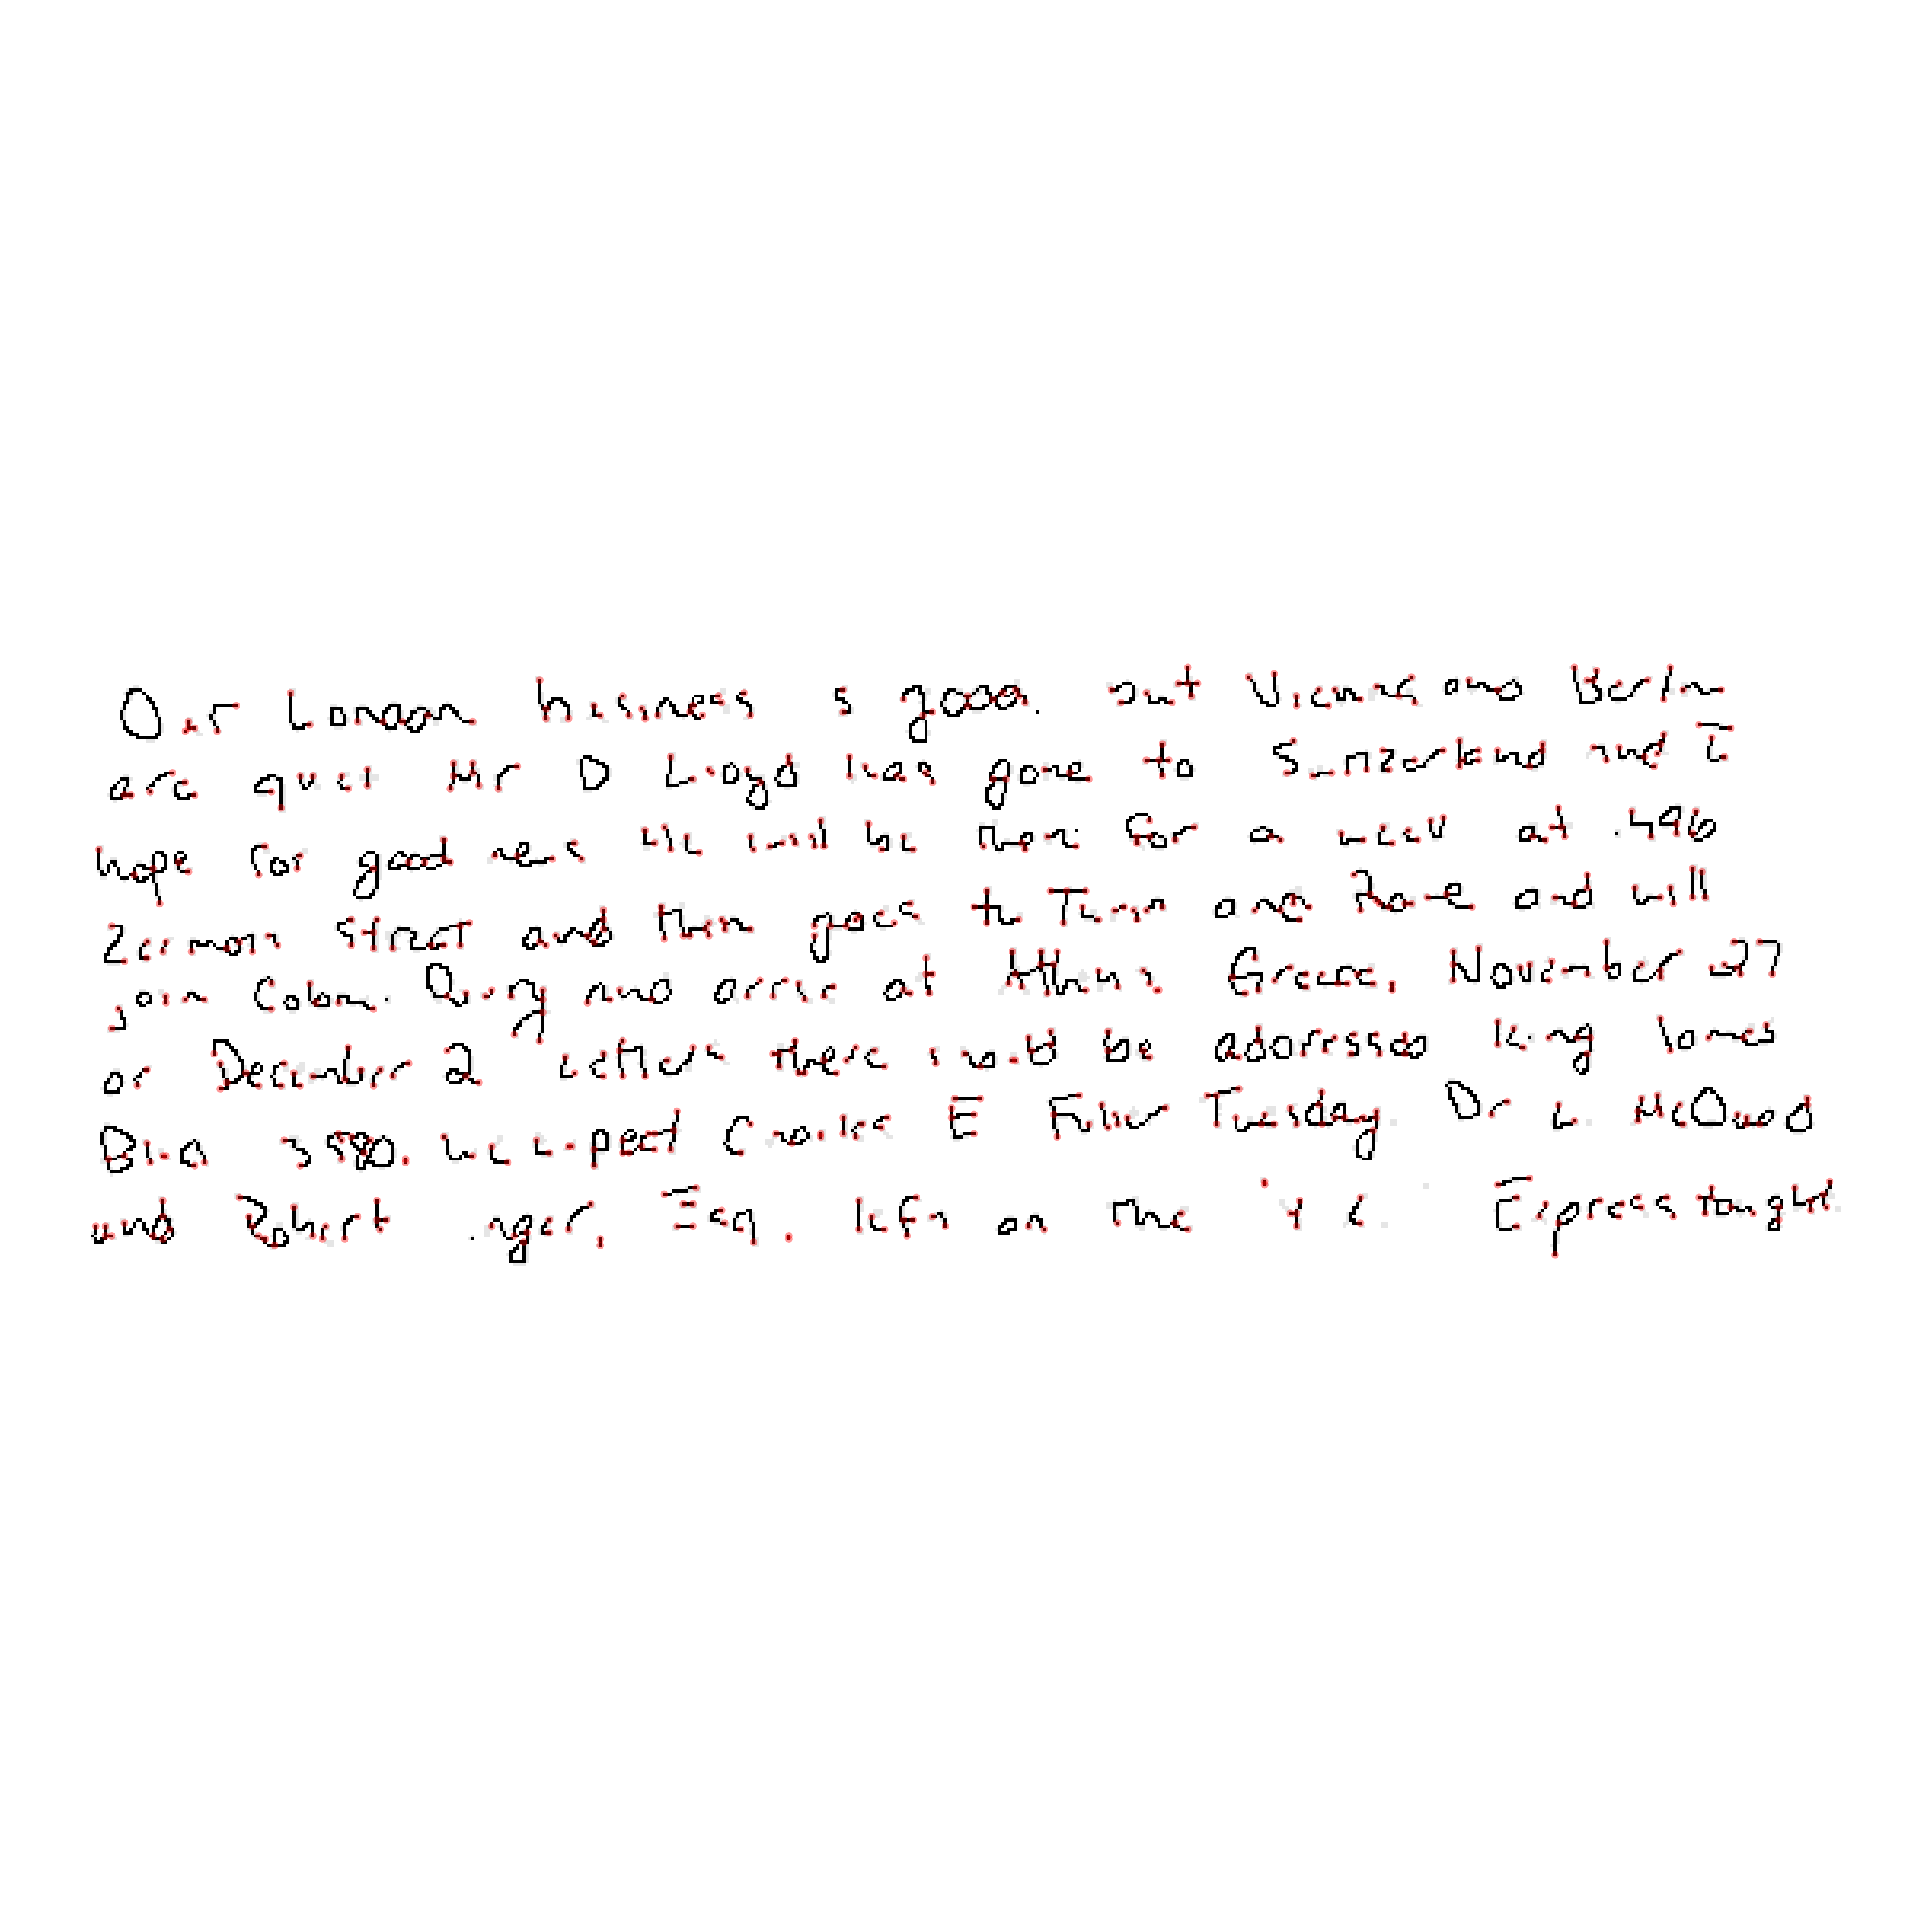 Our London business is good. but Vienna and Berlin
are quiet Mr D Lloyd has gone to Switzerland and I
hope for good news He will be there for a week at 1496
Zermott Street and then goes to Turin and Rome and will
join Colonel Query and arrive at Athens Greece, November 27
or December 2 Letters there should be addressed King James
Blvd 3580. We expect Charles E Fuller Tuesday. Dr L. McQuaid
and Robert Unger, Esq. left on the Express tonight